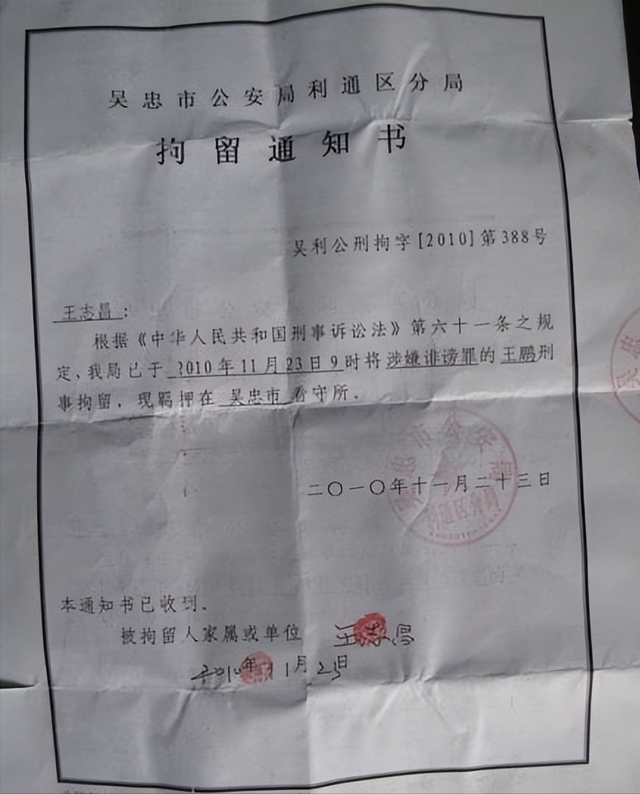 吴忠市公安局利通区分局
拘留通知书
吴利公刑拘字[2010]第388号
王志昌:
根据《中华人民共和国刑事诉讼法》第六十一条之规
定,我局已于 2010年11月23日9时将涉嫌诽谤罪的王鹏刑
事拘留,现羁押在 吴忠市 看守所.
二〇一〇年十一月二十三日
本通知书已收到.
被拘留人家属或单位 王志昌
2010年11月23日